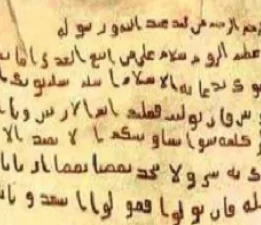 الرحيم من محمد عبد الله ورسوله
عظيم الروم سلام على من اتبع الهدى اما
بدعاية الاسلام اسلم تسلم يوتك
فان توليت فعليك اثم
كلمة سوا بيننا وبينكم الا نعبد الا
به شيا ولا يتخذ بعضنا بعضا اربابا
الله فان تولوا فقولوا اشهدوا بانا